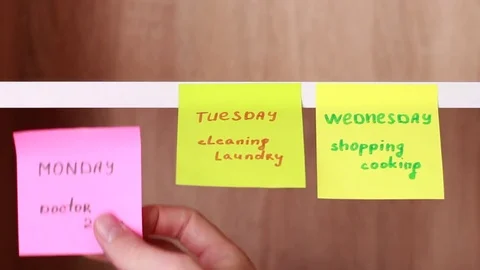 MONDAY
DOCTOR
2
TUESDAY
cleaning
laundry
WEDNESDAY
shopping
cooking